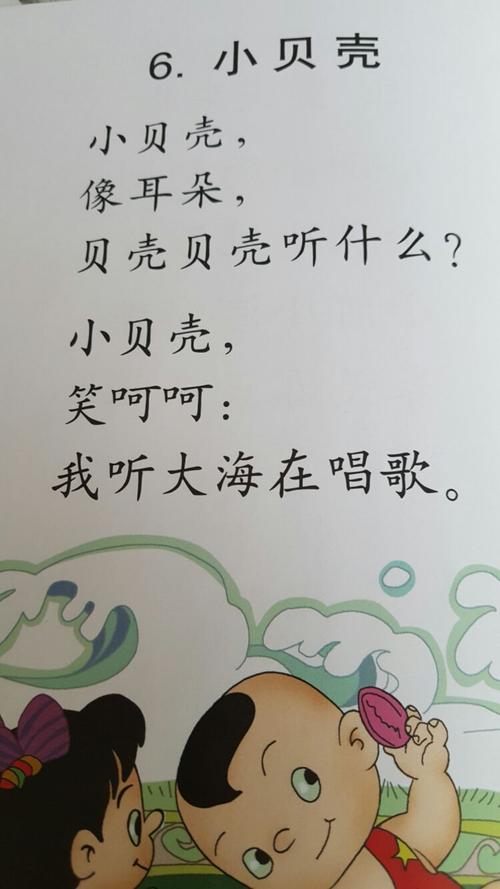 6. 小贝壳
小贝壳，
像耳朵，
贝壳贝壳听什么？
小贝壳，
笑呵呵：
我听大海在唱歌。